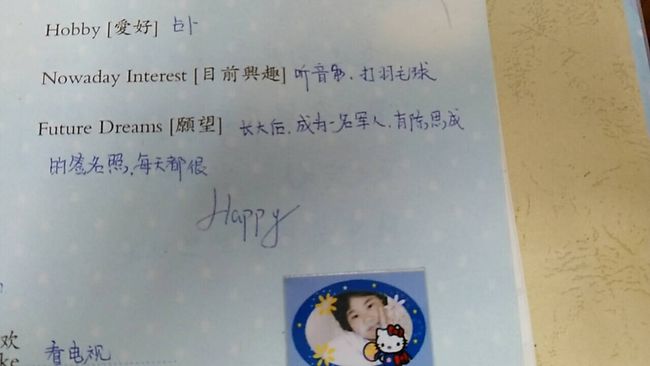 Hobby [愛好] 占卜
Nowaday Interest [目前興趣] 听音乐，打羽毛球
Future Dreams [願望] 长大后，成为一名军人，有陈思成
的签名照，每天都很
Happy
欢
ke 看电视